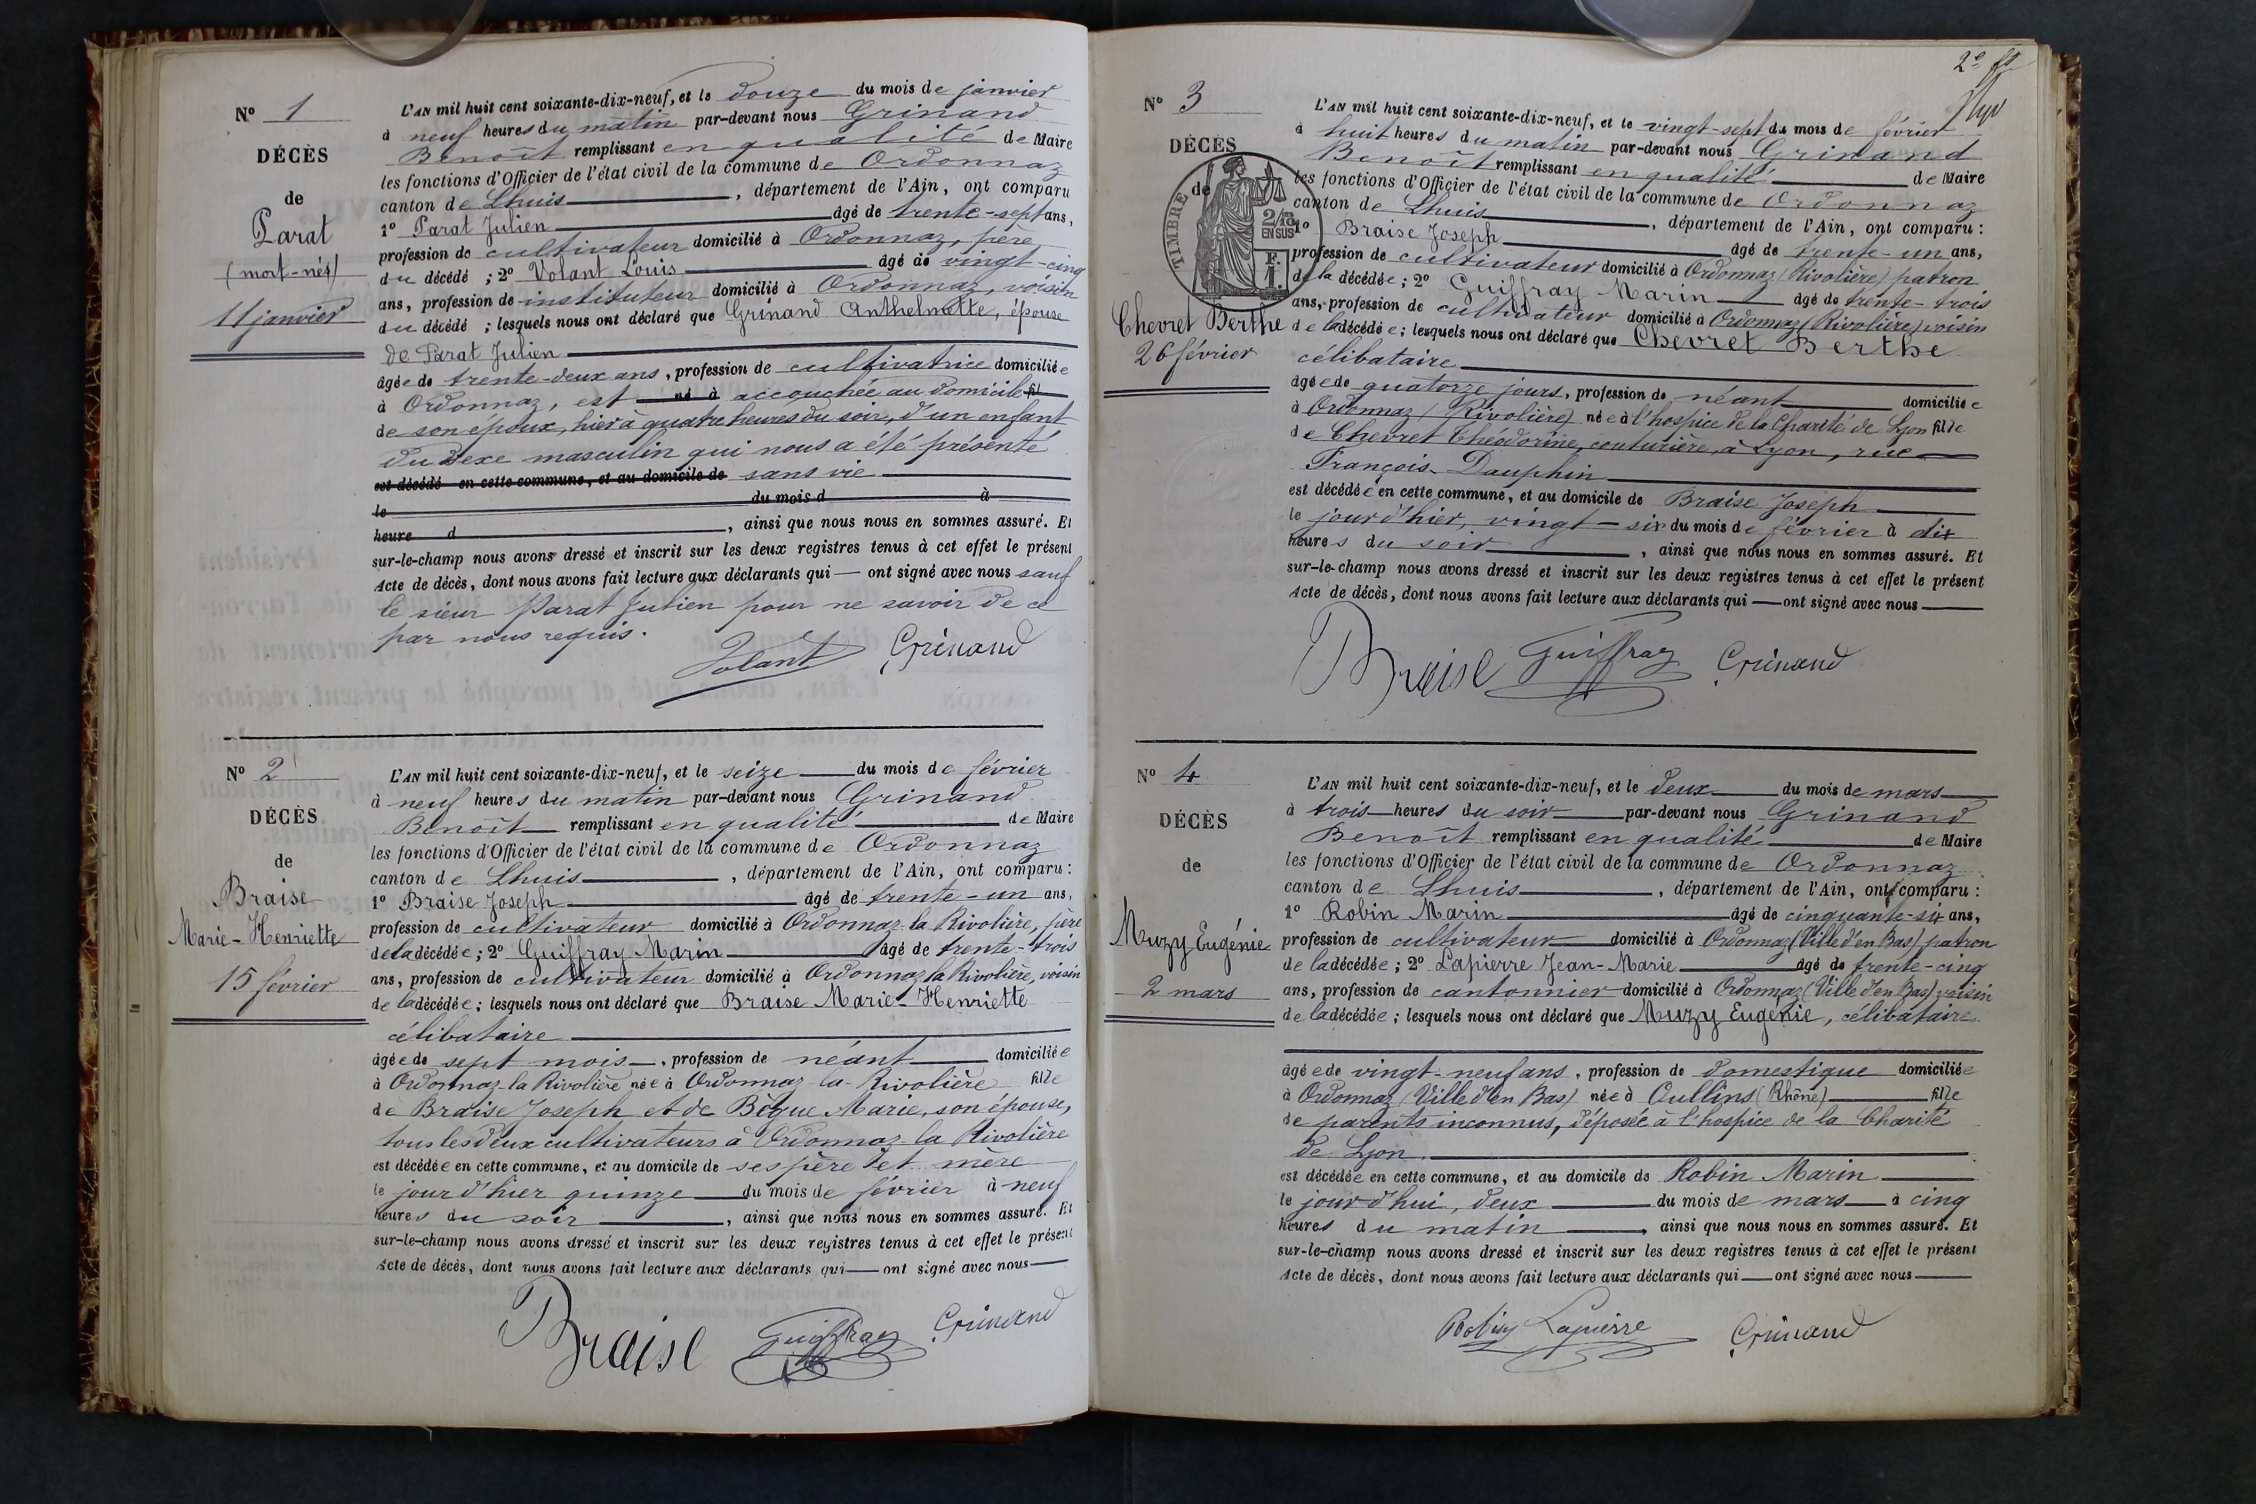 N° 1
DÉCÈS
de
Parat
(mort-né)
11 janvier
L'AN mil huit cent soixante-dix-neuf, et le douze du mois de janvier
à neuf heures du matin par-devant nous Grinand
Benoît remplissant en qualité de Maire
les fonctions d'Officier de l'état civil de la commune de Ordonnaz
canton de Lhuis, département de l'Ain, ont comparu
1° Parat Julien âgé de trente-sept ans,
profession de cultivateur domicilié à Ordonnaz, père
du décédé ; 2° Volant Louis âgé de vingt-cinq
ans, profession de instituteur domicilié à Ordonnaz, voisin
du décédé ; lesquels nous ont déclaré que Grinand Anthelmette, épouse
de Parat Julien
âgée de trente-deux ans, profession de cultivatrice domiciliée
à Ordonnaz, est né à accouchée au domicile fil
de son époux, hier à quatre heures du soir, d'un enfant
du sexe masculin qui nous a été présenté
est décédé en cette commune, et au domicile de sans vie
le du mois d à
heure d , ainsi que nous nous en sommes assuré. Et
sur-le-champ nous avons dressé et inscrit sur les deux registres tenus à cet effet le présent
Acte de décès, dont nous avons fait lecture aux déclarants qui — ont signé avec nous sauf
le sieur Parat Julien pour ne savoir de ce
par nous requis.
Volant Grinand
N° 2
DÉCÈS
de
Braise
Marie-Henriette
15 février
L'AN mil huit cent soixante-dix-neuf, et le seize du mois de février
à neuf heures du matin par-devant nous Grinand
Benoît remplissant en qualité de Maire
les fonctions d'Officier de l'état civil de la commune de Ordonnaz
canton de Lhuis, département de l'Ain, ont comparu :
1° Braise Joseph âgé de trente-un ans,
profession de cultivateur domicilié à Ordonnaz-la Rivolière, père
de la décédée ; 2° Guiffray Marin âgé de trente-trois
ans, profession de cultivateur domicilié à Ordonnaz la Rivolière, voisin
de la décédée ; lesquels nous ont déclaré que Braise Marie-Henriette
célibataire
âgée de sept mois, profession de néant domiciliée
à Ordonnaz-la Rivolière née à Ordonnaz-la-Rivolière fille
de Braise Joseph et de Bègue Marie, son épouse,
tous les deux cultivateurs à Ordonnaz-la Rivolière
est décédée en cette commune, et au domicile de ses père et mère
le jour d'hier quinze du mois de février à neuf
heures du soir, ainsi que nous nous en sommes assuré. Et
sur-le-champ nous avons dressé et inscrit sur les deux registres tenus à cet effet le présent
Acte de décès, dont nous avons fait lecture aux déclarants qui — ont signé avec nous —
Braise Guiffray Grinand
2e fo
N° 3
DÉCÈS
de
TIMBRE
2/10 EN SUS
F. 1.
Chevret Berthe
26 février
L'AN mil huit cent soixante-dix-neuf, et le vingt-sept du mois de février
à huit heures du matin par-devant nous Grinand
Benoît remplissant en qualité de Maire
les fonctions d'Officier de l'état civil de la commune de Ordonnaz
canton de Lhuis, département de l'Ain, ont comparu :
1° Braise Joseph âgé de trente-un ans,
profession de cultivateur domicilié à Ordonnaz (Rivolière) patron
de la décédée ; 2° Guiffray Marin âgé de trente-trois
ans, profession de cultivateur domicilié à Ordonnaz (Rivolière) voisin
de la décédée ; lesquels nous ont déclaré que Chevret Berthe
célibataire
âgée de quatorze jours, profession de néant domiciliée
à Ordonnaz (Rivolière) née à l'hospice de la Charité de Lyon fille
de Chevret Théodorine, couturière, à Lyon, rue
François-Dauphin
est décédée en cette commune, et au domicile de Braise Joseph
le jour d'hier, vingt-six du mois de février à dix
heures du soir, ainsi que nous nous en sommes assuré. Et
sur-le-champ nous avons dressé et inscrit sur les deux registres tenus à cet effet le présent
Acte de décès, dont nous avons fait lecture aux déclarants qui — ont signé avec nous —
Braise Guiffray Grinand
N° 4
DÉCÈS
de
Muzy Eugénie
2 mars
L'AN mil huit cent soixante-dix-neuf, et le deux du mois de mars
à trois heures du soir par-devant nous Grinand
Benoît remplissant en qualité de Maire
les fonctions d'Officier de l'état civil de la commune de Ordonnaz
canton de Lhuis, département de l'Ain, ont comparu :
1° Robin Marin âgé de cinquante-six ans,
profession de cultivateur domicilié à Ordonnaz (Ville d'en Bas) patron
de la décédée ; 2° Lapierre Jean-Marie âgé de trente-cinq
ans, profession de cantonnier domicilié à Ordonnaz (Ville d'en Bas) voisin
de la décédée ; lesquels nous ont déclaré que Muzy Eugénie, célibataire
âgée de vingt-neuf ans, profession de domestique domiciliée
à Ordonnaz (Ville d'en Bas) née à Oullins (Rhône) fille
de parents inconnus, déposée à l'hospice de la Charité
de Lyon.
est décédée en cette commune, et au domicile de Robin Marin
le jour d'hui, deux du mois de mars à cinq
heures du matin, ainsi que nous nous en sommes assuré. Et
sur-le-champ nous avons dressé et inscrit sur les deux registres tenus à cet effet le présent
Acte de décès, dont nous avons fait lecture aux déclarants qui — ont signé avec nous —
Robin Lapierre Grinand